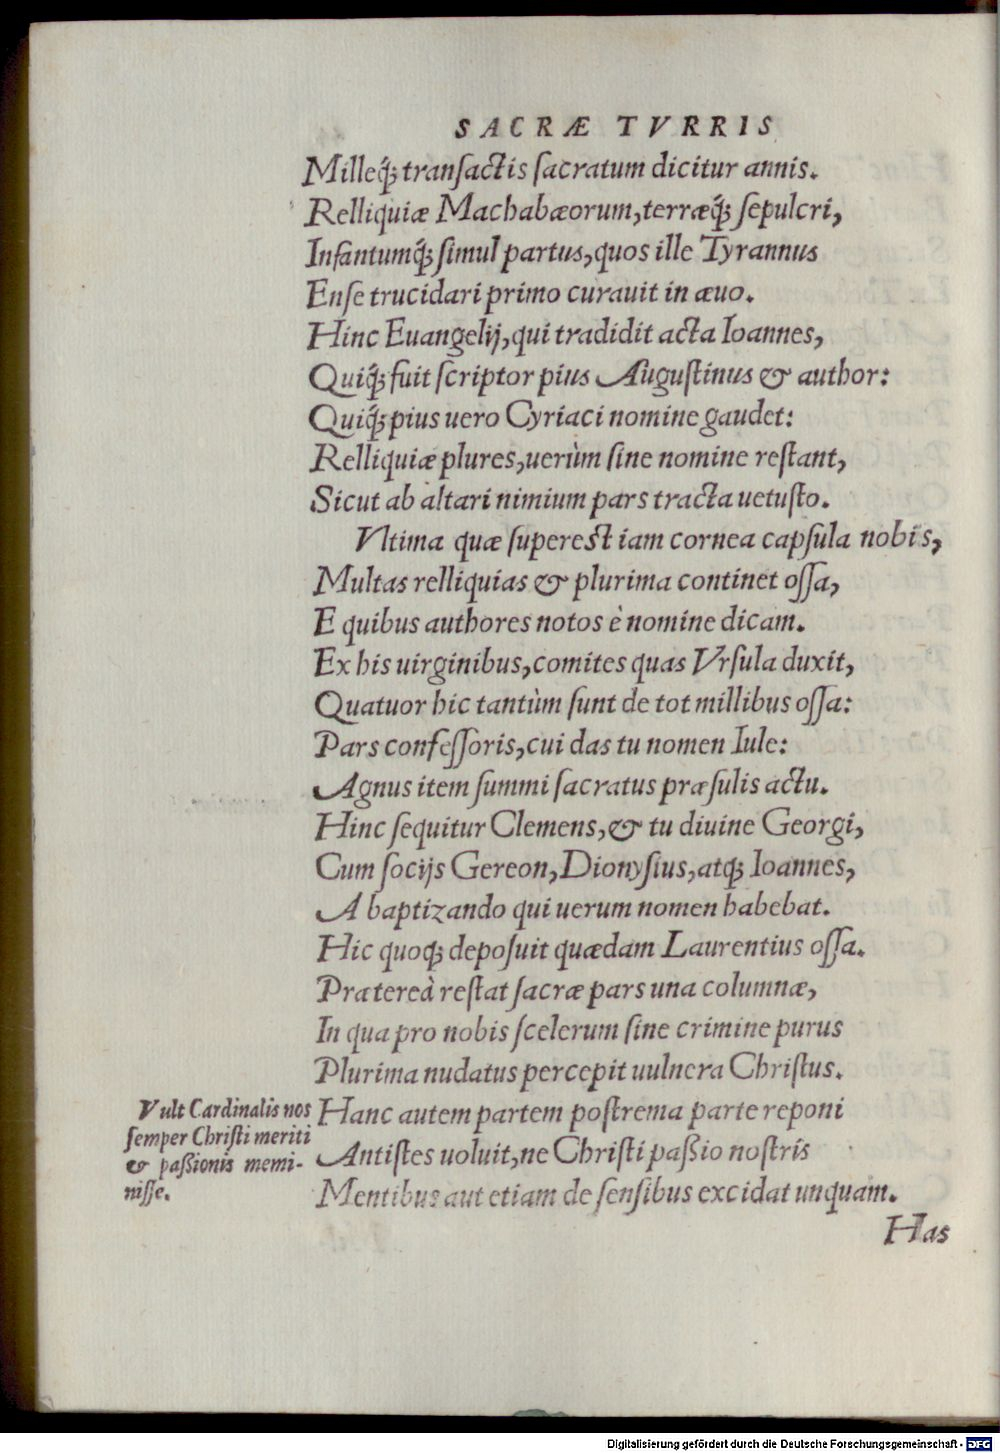 SACRÆ TVRRIS
Milleq́; transactis sacratum dicitur annis.
Relliquiæ Machabæorum, terræq́; sepulcri,
Infantumq́; simul partus, quos ille Tyrannus
Ense trucidari primo curauit in æuo.
Hinc Euangelij, qui tradidit acta Ioannes,
Quiq́; fuit scriptor pius Augustinus & author:
Quiq́; pius uero Cyriaci nomine gaudet:
Relliquiæ plures, uerùm sine nomine restant,
Sicut ab altari nimium pars tracta uetusto.
Vltima quæ superest iam cornea capsula nobis,
Multas relliquias & plurima continet ossa,
E quibus authores notos è nomine dicam.
Ex his uirginibus, comites quas Vrsula duxit,
Quatuor hic tantùm sunt de tot millibus ossa:
Pars confessoris, cui das tu nomen Iule:
Agnus item summi sacratus præsulis actu.
Hinc sequitur Clemens, & tu diuine Georgi,
Cum socijs Gereon, Dionysius, atq; Ioannes,
A baptizando qui uerum nomen habebat.
Hic quoq; deposuit quædam Laurentius ossa.
Prætereà restat sacræ pars una columnæ,
In qua pro nobis scelerum sine crimine purus
Plurima nudatus percepit uulnera Christus.
Hanc autem partem postrema parte reponi
Antistes uoluit, ne Christi paßio nostris
Mentibus aut etiam de sensibus excidat unquam.
Vult Cardinalis nos
semper Christi meriti
& paßionis memi-
nisse.
Has
Digitalisierung gefördert durch die Deutsche Forschungsgemeinschaft - DFG